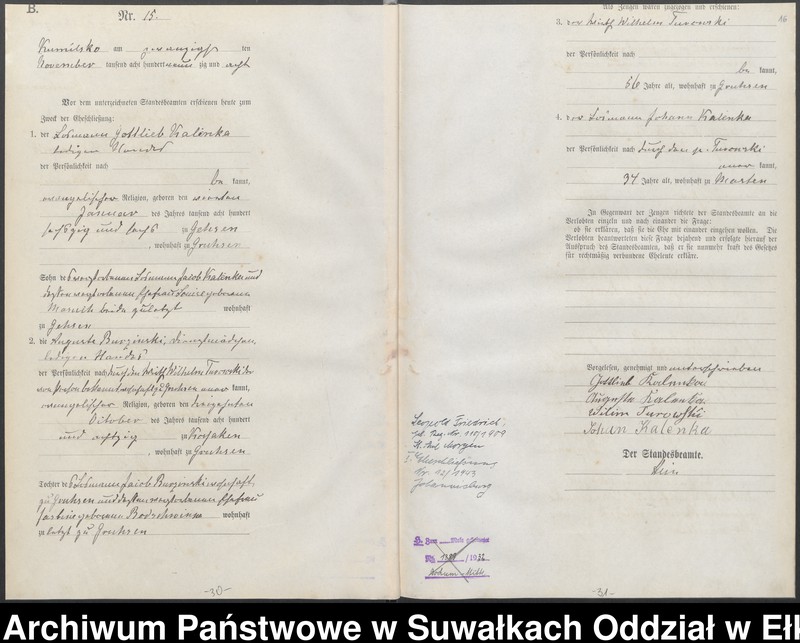 B.
Nr. 15.
Kumilsko am zwanzigsten
November tausend acht hundert neunzig und acht
Vor dem unterzeichneten Standesbeamten erschienen heute zum
Zweck der Eheschließung:
1. der Losmann Gottlieb Kalinka
ledigen Standes
der Persönlichkeit nach
be kannt,
evangelischer Religion, geboren den vierten
Januar des Jahres tausend acht hundert
sechszig und sechs zu Gehsen
, wohnhaft zu Gruhsen
Sohn des verstorbenen Losmann Jacob Kalinka und
dessen verstorbenen Ehefrau Louise geborene
beide zuletzt wohnhaft
zu Gehsen
2. die Auguste Burzinski, Dienstmädchen,
ledigen Standes
der Persönlichkeit nach durch den Wirth Wilhelm Turowski der
von Person bekannt wohnhaft zu Gruhsen aner kannt,
evangelischer Religion, geboren den dreizehnten
October des Jahres tausend acht hundert
und achtzig zu
, wohnhaft zu Gruhsen
Tochter des Losmann Jacob Burzinski wohnhaft
zu Gruhsen und dessen verstorbenen Ehefrau
geborene wohnhaft
zuletzt zu Gruhsen
-30-
Als Zeugen waren zugezogen und erschienen:
16
3. der Wirth Wilhelm Turowski
der Persönlichkeit nach
be kannt,
56 Jahre alt, wohnhaft zu Gruhsen
4. der Losmann Johann Kalinka
der Persönlichkeit nach durch den p. Turowski
aner kannt,
34 Jahre alt, wohnhaft zu
In Gegenwart der Zeugen richtete der Standesbeamte an die
Verlobten einzeln und nach einander die Frage:
ob sie erklären, daß sie die Ehe mit einander eingehen wollen. Die
Verlobten beantworteten diese Frage bejahend und erfolgte hierauf der
Ausspruch des Standesbeamten, daß er sie nunmehr kraft des Gesetzes
für rechtmäßig verbundene Eheleute erkläre.
Vorgelesen, genehmigt und unterschrieben
Gottlieb Kalinka
Auguste Kalinka
Wilhelm Turowski
Johan Kalenka
Der Standesbeamte.
Friedrich,
Nr. 110/1909
I. Eheschließung
Nr. 12/1933
Johannisburg
/1936
-31-
Archiwum Państwowe w Suwałkach Oddział w Eł